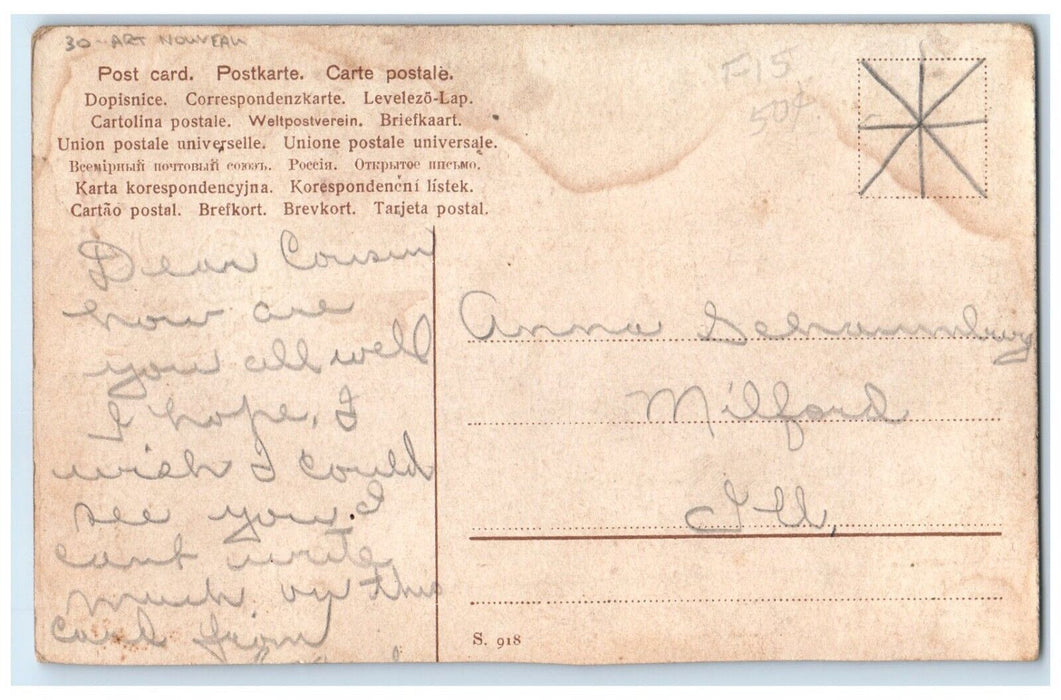 30 - ART NOUVEAU
F15
50¢
Post card. Postkarte. Carte postale.
Dopisnice. Correspondenzkarte. Levelező-Lap.
Cartolina postale. Weltpostverein. Briefkaart.
Union postale universelle. Unione postale universale.
Всемірный почтовый союзъ. Россія. Открытое письмо.
Karta korespondencyjna. Korespondenční lístek.
Cartão postal. Brefkort. Brevkort. Tarjeta postal.
Dear Cousin
how are
you all well
I hope, I
wish I could
see you. I
cant write
much on this
card from
Anna Schaumburg
Milford
Ill,
S. 918